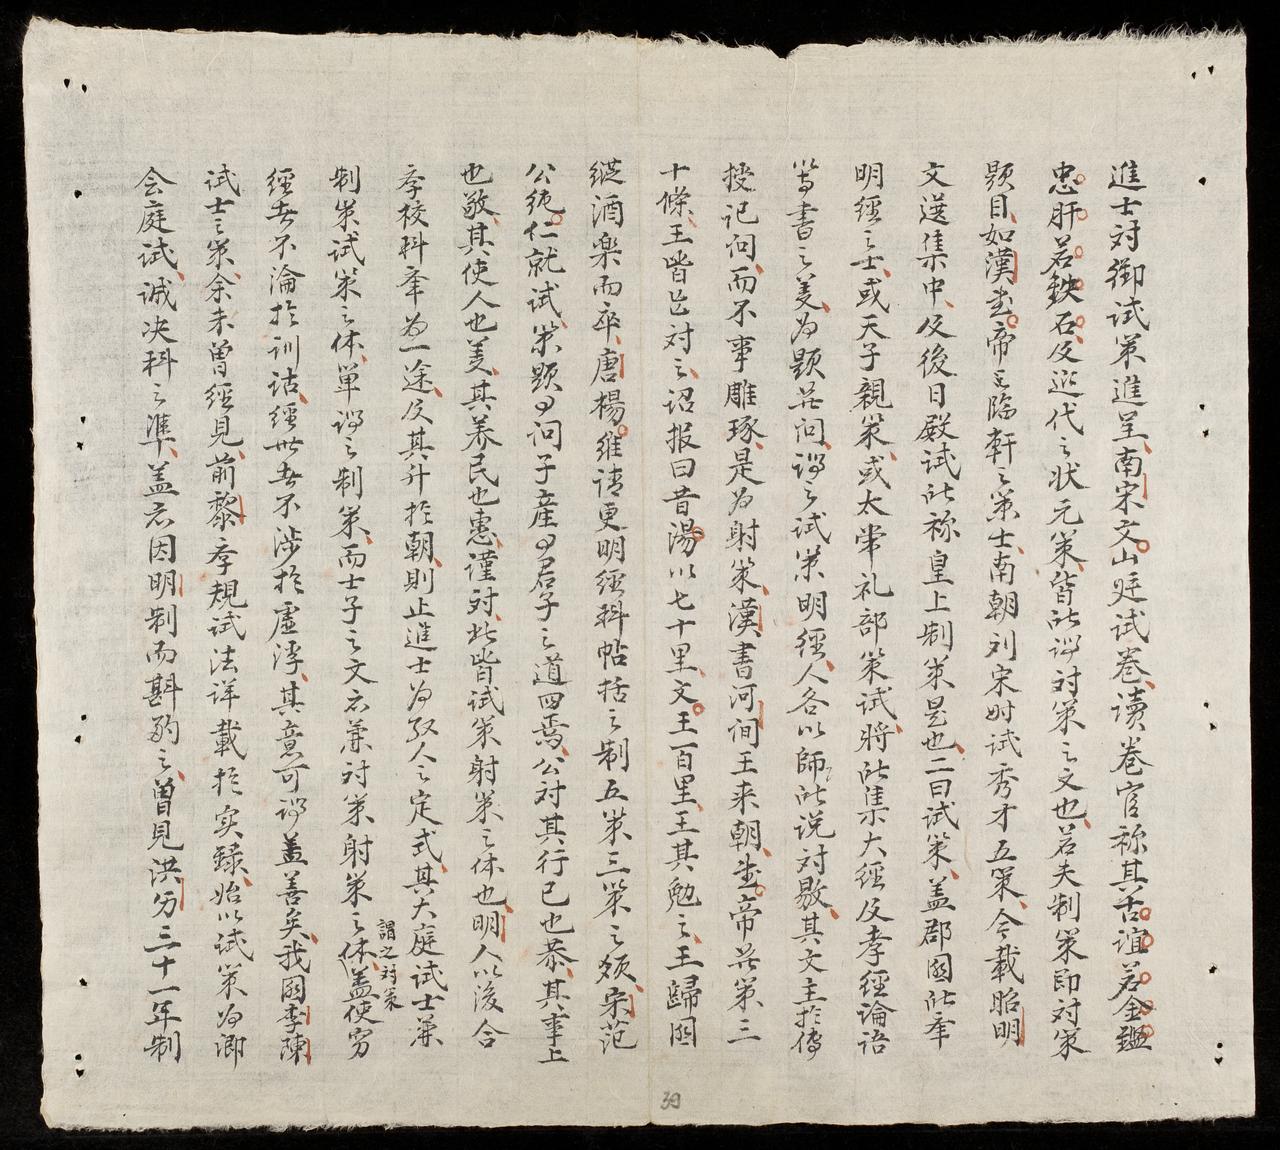 進士対御試策進呈南宋文山廷試卷讀卷官称其古誼若金鑑
忠肝若鉄石及近代之状元策皆所謂対策之文也若夫制策即対策
題目如漢武帝臨軒之策士南朝刘宋时試秀才五策今載昭明
文選集中及後日殿試所称皇上制策是也二曰試策盖郡國所举
明經之士或天子親策或太常礼部策試將所集大經及孝經論語
等書之義为題並问謂之試策明經人各以師所说対敭其文主於傳
授记问而不事雕琢是为射策漢書河间王来朝武帝並策三
十條王皆㠯対之诏报曰昔湯以七十里文王百里王其勉之王歸國
縱酒楽而卒唐楊绾請更明經科帖括之制五策三策之類宋范
公純仁就試策題曰问子産曰君子之道四焉公対其行己也恭其事上
也敬其使人也義其养民也惠谨対此皆試策射策之体也明人以後合
孝校科举为一途及其升於朝則止進士为取人之定式其大庭試士兼
制策試策之体單謂之制策而士子之文亦兼対策射策之体謂之対策盖使穷
經者不淪於训诂經世者不涉於虚浮其意可謂盖善矣我國李陳
試士之策余未曾經見前黎孝規試法详載於实録始以試策为郷
会庭試诚决科之準盖亦因明制而斟酌之曽見洪勿三十一年制
39